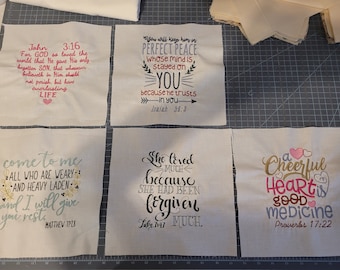 John 3:16
For GOD so loved the
world that He gave His only
begotten SON, that whosoever
believeth in Him should
not perish but have
everlasting
LIFE
You will keep him in
PERFECT PEACE
WHOSE MIND IS
STAYED ON
YOU
BECAUSE HE TRUSTS
in you
Isaiah 26:3
come to me
ALL WHO ARE WEARY
AND HEAVY LADEN
and I will
give you
rest
MATTHEW 11:28
She loved
MUCH
because
SHE HAD BEEN
forgiven
MUCH.
Luke 7:47
a
Cheerful
HeaRt is
GOOD
medicine
Proverbs 17:22